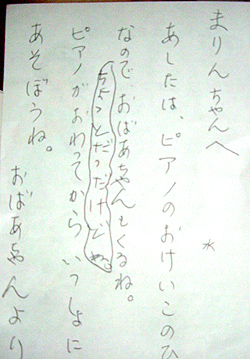 まりんちゃんへ
あしたは、ピアノのおけいこのひ
なので、おばあちゃんもくるね。
ピアノがおわってから いっしょに
あそぼうね。 おばあちゃんより